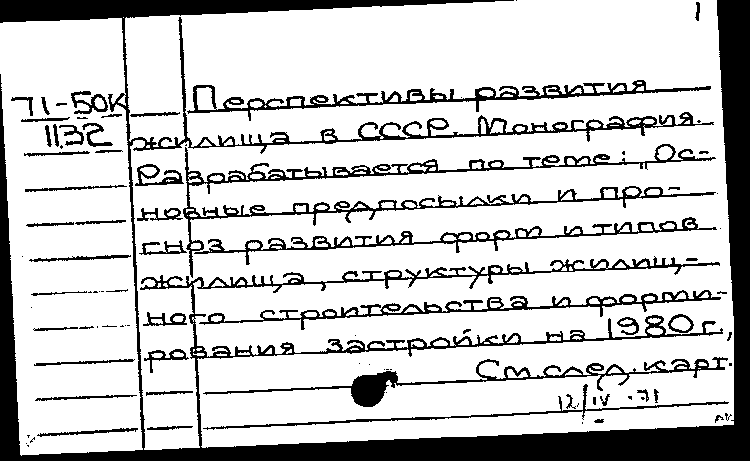 1
71-50К Перспективы развития
1132 жилища в СССР. Монография.
Разрабатывается по теме: „Ос-
новные предпосылки и про-
гноз развития форм и типов
жилища, структуры жилищ-
ного строительства и форми-
рования застройки на 1980 г.,
См. след. карт.
12/IV-71